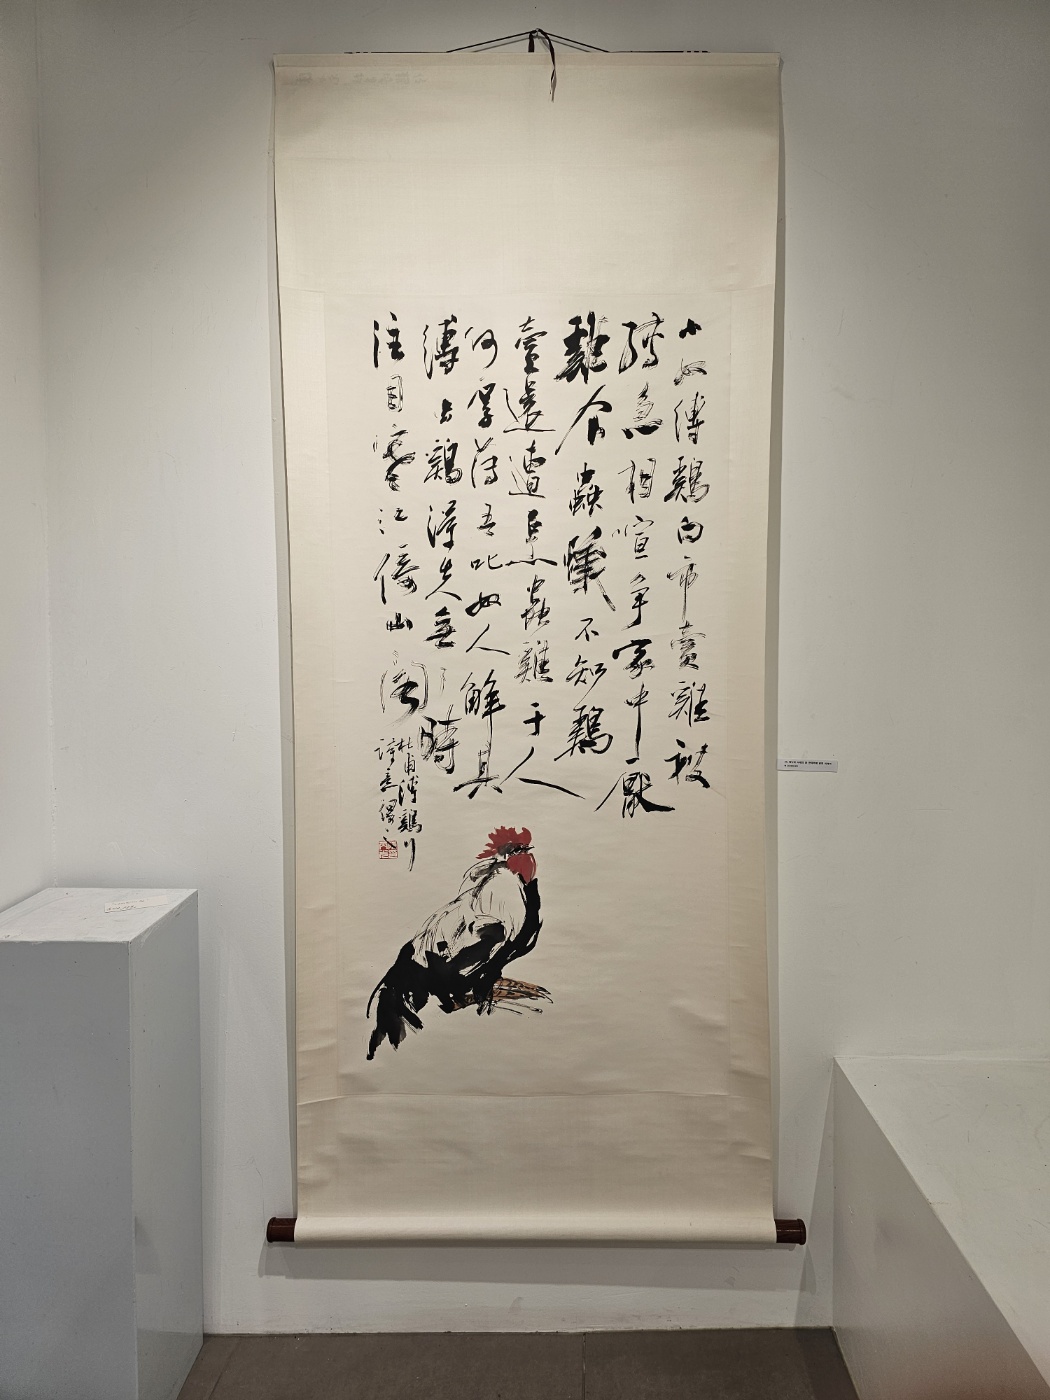 小奴縛鷄向市賣雞被
縛急相喧爭家中厭
雞食蟲蟻不知鷄
賣還遭烹蟲雞于人
何厚薄吾叱奴人解其
縛虫鷄得失無了時
注目寒江倚山閣
杜甫縛鷄行
詩意